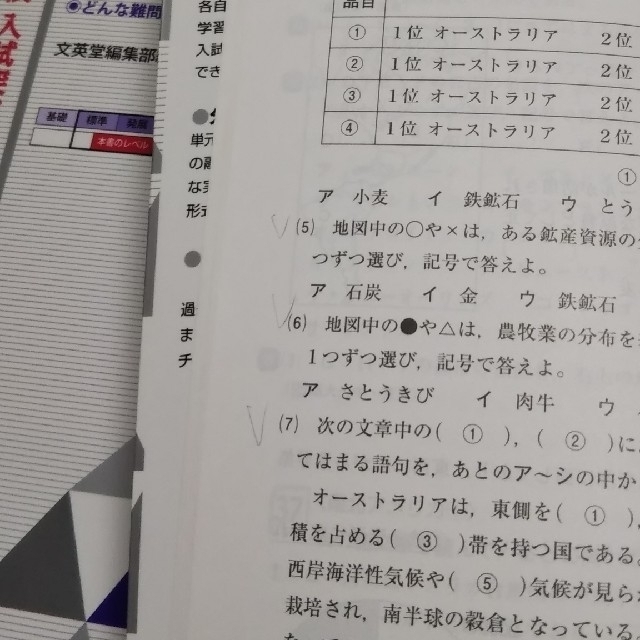 入試
●どんな難問
文英堂編集部
基礎 標準 発展
本書のレベル
各自
学習
入試
でき
単元
の融
な実
形式
過
ま
チ
品目
① 1位 オーストラリア 2位
② 1位 オーストラリア 2位
③ 1位 オーストラリア 2位
④ 1位 オーストラリア 2位
①
ア 小麦 イ 鉄鉱石 ウ とう
(5) 地図中の○や×は，ある鉱産資源の
つずつ選び，記号で答えよ。
ア 石炭 イ 金 ウ 鉄鉱石
(6) 地図中の●や△は，農牧業の分布を
1つずつ選び，記号で答えよ。
ア さとうきび イ 肉牛 ウ
(7) 次の文章中の( ① )，( ② )に
てはまる語句を，あとのア〜シの中か
オーストラリアは，東側を( ① )，
積を占める( ③ )帯を持つ国である。
西岸海洋性気候や( ⑤ )気候が見ら
栽培され，南半球の穀倉となっている